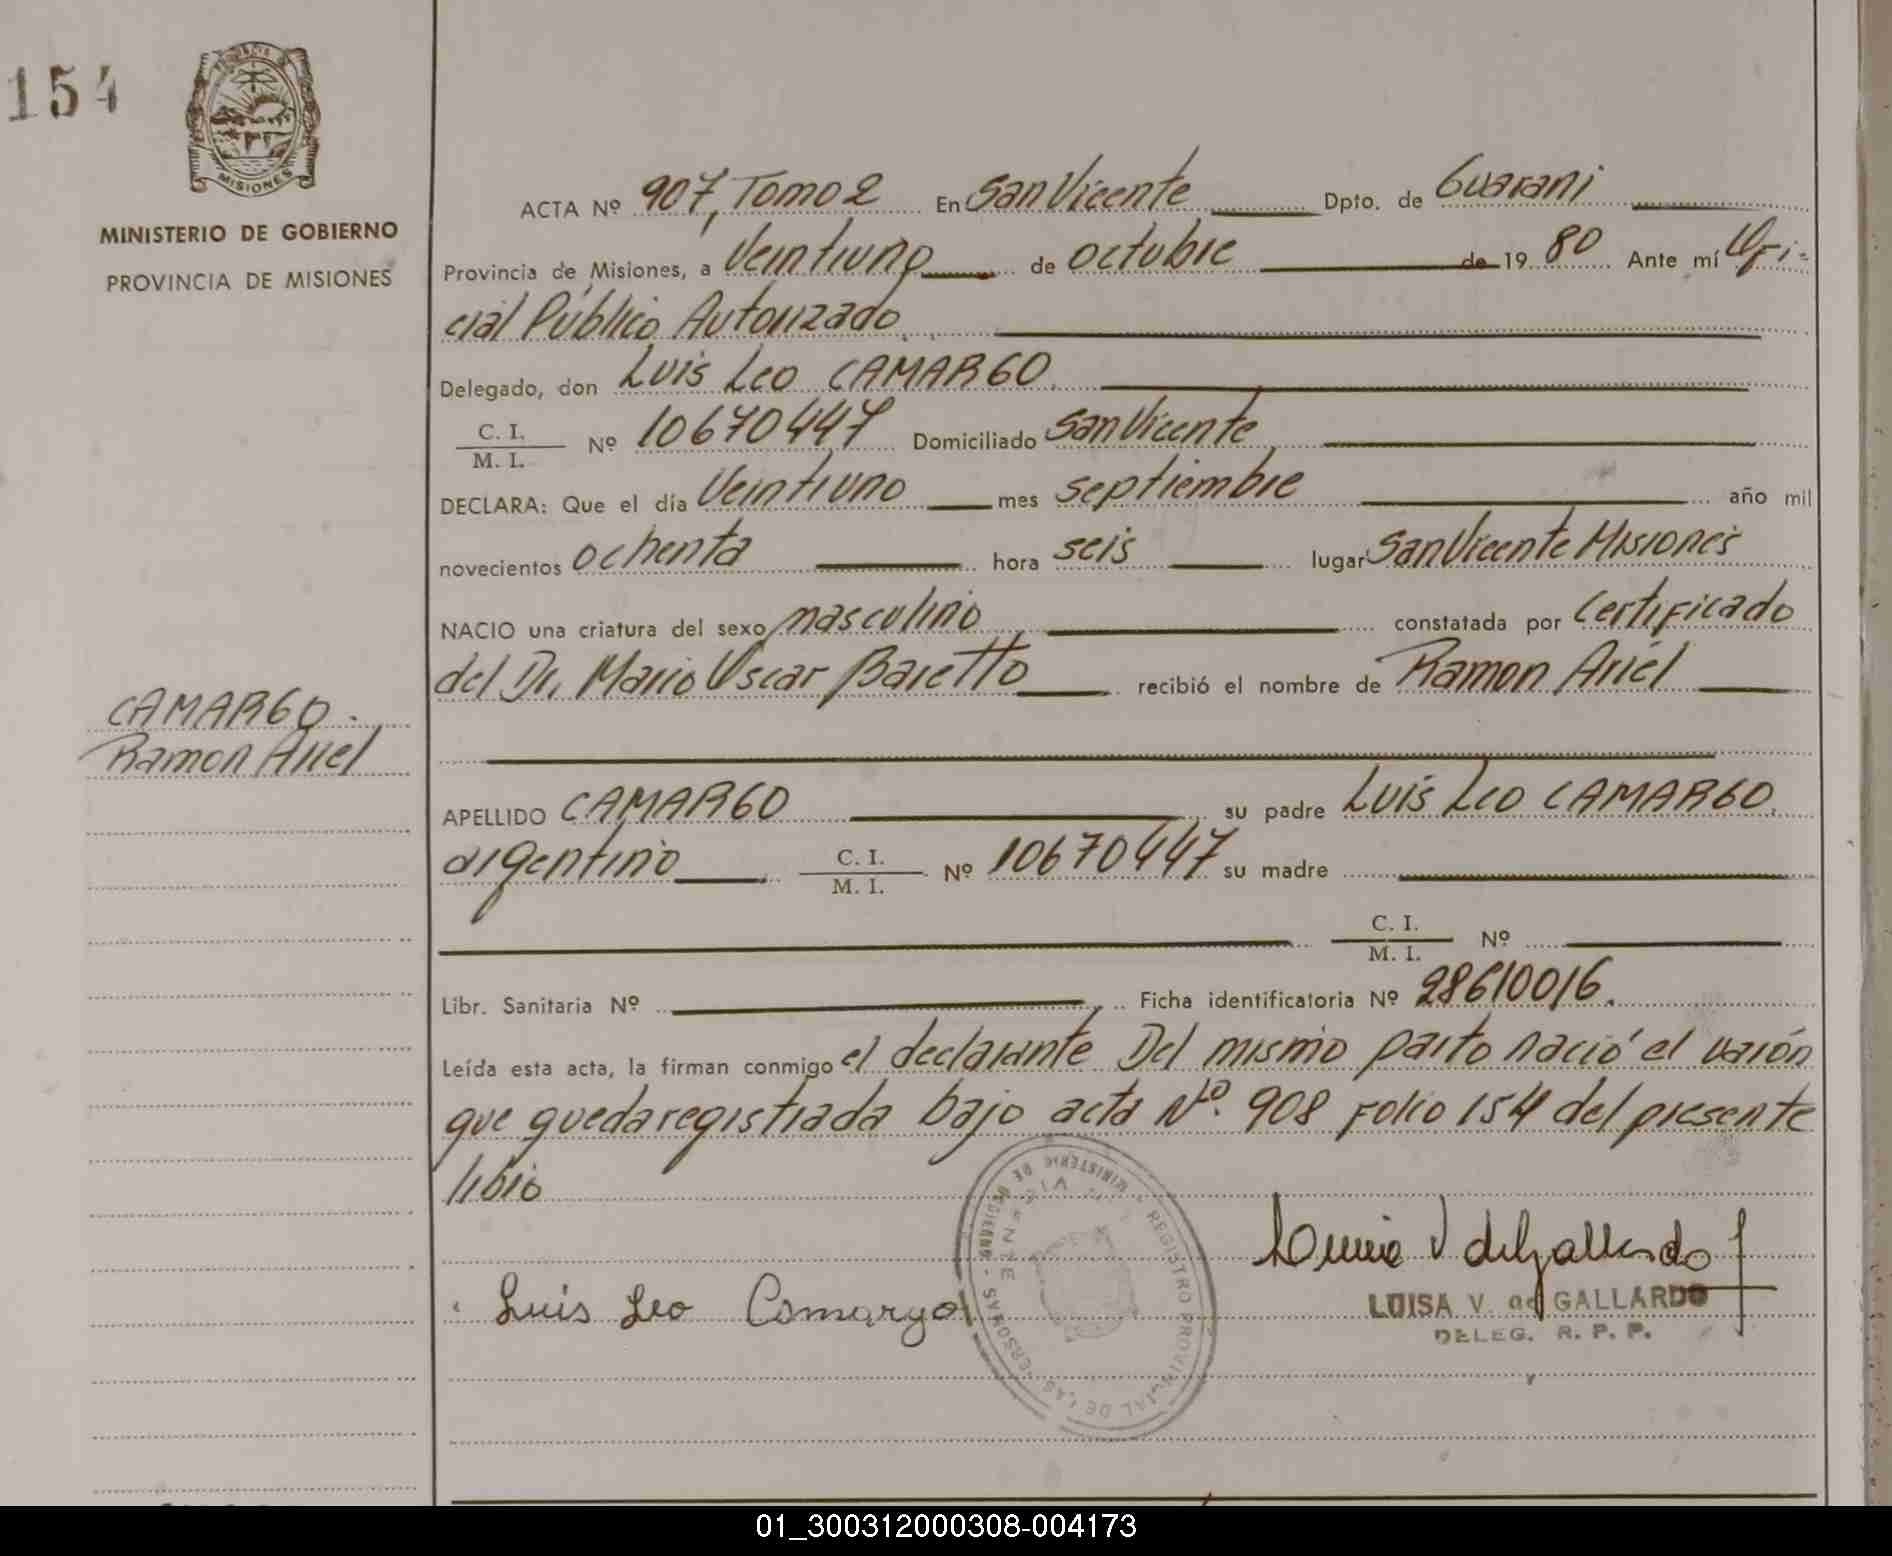 154
MISIONES
MINISTERIO DE GOBIERNO
PROVINCIA DE MISIONES
CAMARGO.
Ramon Ariel
ACTA Nº 907, Tomo 2 En San Vicente Dpto. de Guarani
Provincia de Misiones, a Veintiuno de octubre de 19 80 Ante mí Ofi-
cial Público Autorizado
Delegado, don Luis Leo CAMARGO.
C. I.
M. I. Nº 10670447 Domiciliado San Vicente
DECLARA: Que el día Veintiuno mes septiembre año mil
novecientos ochenta hora seis lugar San Vicente Misiones
NACIO una criatura del sexo masculino constatada por Certificado
del Dr. Mario Oscar Baretto recibió el nombre de Ramon Ariel
APELLIDO CAMARGO su padre Luis Leo CAMARGO.
argentino C. I.
M. I. Nº 10670447 su madre
C. I.
M. I. Nº
Libr. Sanitaria Nº Ficha identificatoria Nº 28610016.
Leída esta acta, la firman conmigo el declarante Del mismo parto nació el varón
que queda registrada bajo acta Nº. 908 Folio 154 del presente
libro
MINISTERIO DE GOBIERNO - REGISTRO PROVINCIAL DE LAS PERSONAS
Luis Leo Camargo
LUISA V. de GALLARDO
DELEG. R. P. P.
01_300312000308-004173